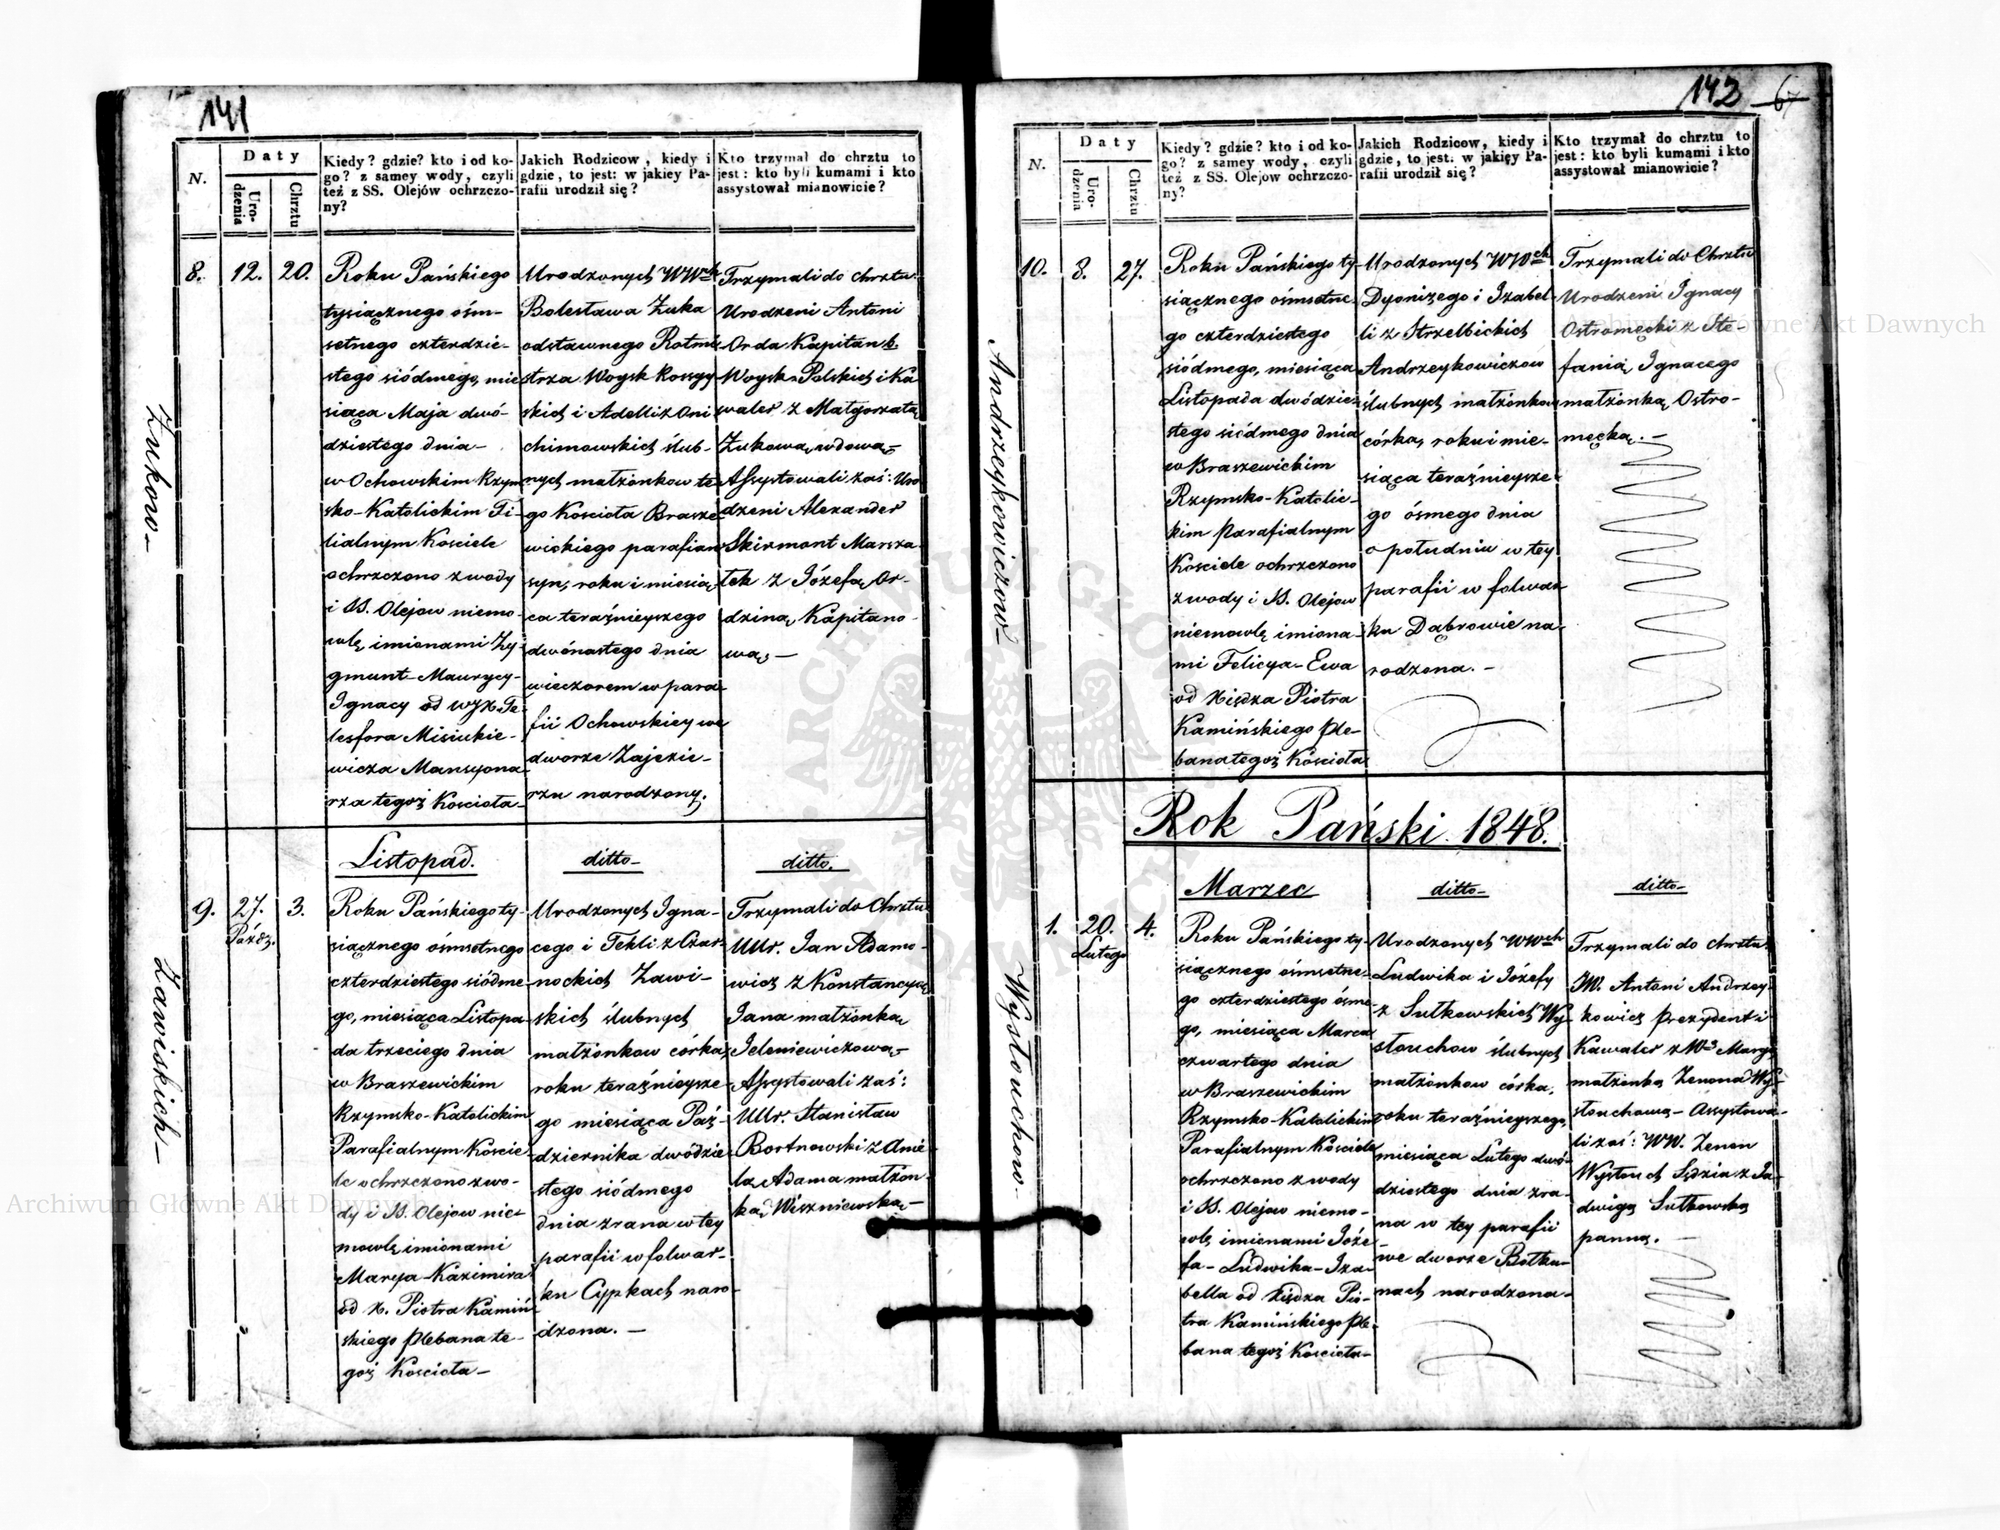 141
N.
Daty
Uro-
dzenia
Chrztu
Kiedy? gdzie? kto i od ko-
go? z samey wody, czyli
też z SS. Olejów ochrzczo-
ny?
Jakich Rodzicow, kiedy i
gdzie, to jest: w jakiey Pa-
rafii urodził się?
Kto trzymał do chrztu to
jest: kto byli kumami i kto
assystował mianowicie?
Żukow-
8.
12.
20.
Roku Pańskiego
tysiącznego ośm-
setnego czterdzie-
stego siódmego, mie
siąca Maja dwó-
dziestego dnia-
w Ochowskim Rzym
sko-Katolickim Fi-
lialnym Kościele
ochrzczono z wody
i SS. Olejow niemo-
wlę imionami Zy-
gmunt-Maurycy-
Ignacy od wyż. Te-
lesfora Misiukie-
wicza Mansyona
rza tegoż Kościoła-
Urodzonych WWch
Bolesława Żuka
odstawnego Rotmi-
strza Woysk Rossyy
skich i Adelli z Oni
chimowskich ślub-
nych małżonkow te
go Kościoła Brasze-
wickiego parafian
syn, roku i miesią
ca teraźnieyszego
dwónastego dnia
wieczorem w para
fii Ochowskiey we
dworze Zajezie-
rzu narodzony.
Trzymali do chrztu
Urodzeni Antoni
Orda Kapitan b.
Woysk Polskich i Ka
waler z Małgorzatą
Żukową wdową-
Assystowali zaś: Uro
dzeni Alexander
Skirmont Marsza-
łek z Józefą Or-
dziną Kapitano-
wą,-
Zawiskich-
Listopad.
ditto-
ditto.
9.
27.
Paźdz.
3.
Roku Pańskiego ty-
siącznego ośmsetnego
czterdziestego siódme-
go, miesiąca Listopa-
da trzeciego dnia
w Braszewickim
Rzymsko-Katolickim
Parafialnym Koście-
le ochrzczono z wo-
dy i SS. Olejow nie-
mowlę imionami
Marya-Kazimira
od X. Piotra Kamiń
skiego plebana te-
goż Kościoła-
Urodzonych Igna-
cego i Tekli z Czar-
nockich Zawi-
skich ślubnych
małżonkow córka,
roku teraźnieysze-
go miesiąca Paź-
dziernika dwódzie
stego siódmego
dnia zrana w tey
parafii w folwar-
ku Cypkach naro-
dzona.-
Trzymali do Chrztu
UUr. Jan Adamo-
wicz z Konstancyą
Jana małżonką
Jeleniewiczową-
Assystowali zaś:
UUr. Stanisław
Bortnowski z Anie-
lą Adama małżon-
ką Wiszniewską-
142
67
N.
Daty
Uro-
dzenia
Chrztu
Kiedy? gdzie? kto i od ko-
go? z samey wody, czyli
też z SS. Olejów ochrzczo-
ny?
Jakich Rodzicow, kiedy i
gdzie, to jest: w jakiey Pa-
rafii urodził się?
Kto trzymał do chrztu to
jest: kto byli kumami i kto
assystował mianowicie?
Andrzeykowiczow-
10.
8.
27.
Roku Pańskiego ty-
siącznego ośmsetne-
go czterdziestego
siódmego, miesiąca
Listopada dwódzie-
stego siódmego dnia
w Braszewickim
Rzymsko-Katolic-
kim Parafialnym
Kościele ochrzczono
z wody i SS. Olejow
niemowlę imiona-
mi Felicya-Ewa
od Xiędza Piotra
Kamińskiego ple-
bana tegoż Kościoła
Urodzonych WWch
Dyonizego i Izabel-
li z Strzelbickich
Andrzeykowiczow
ślubnych małżonkow
córka, roku i mie-
siąca teraźnieysze-
go ósmego dnia
o południu w tey
parafii w folwar-
ku Dąbrowie na-
rodzona.-
Trzymali do Chrztu
Urodzeni Ignacy
Ostromęcki z Ste-
fanią Ignacego
małżonką Ostro-
męcką.-
Rok Pański 1848.
Marzec
ditto-
ditto-
Wysłouchow-
1.
20.
Lutego
4.
Roku Pańskiego ty-
siącznego ośmsetne-
go czterdziestego ósme-
go, miesiąca Marca
czwartego dnia
w Braszewickim
Rzymsko-Katolickim
Parafialnym Kościele
ochrzczono z wody
i SS. Olejow niemo-
wlę imionami Józe-
fa-Ludwika-Iza-
bella od Xiędza Pio-
tra Kamińskiego ple-
bana tegoż Kościoła-
Urodzonych WWch
Ludwika i Józefy
z Sutkowskich Wy-
słouchow ślubnych
małżonkow córka,
roku teraźnieyszego,
miesiąca Lutego dwó-
dziestego dnia zra-
na w tey parafii
we dworze Botku-
nach narodzona-
Trzymali do chrztu
JW. Antoni Andrzey-
kowicz Prezydent i
Kawaler z
małżonką Zenona Wy-
słouchową- Assystowa-
li zaś: WW. Zenon
Wysłouch Sędzia z Ja-
dwigą Sutkowską
panną.-
Archiwum Główne Akt Dawnych
Archiwum Główne Akt Dawnych